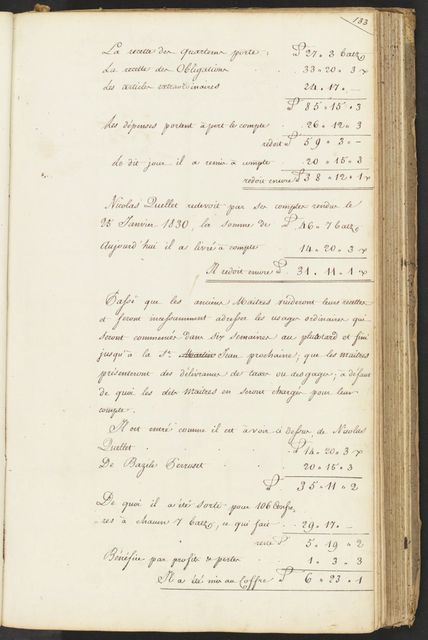 133
La recette des quarterons porte, £ 27 . 3 batz
La recette des Obligations . . 33 . 20 . 3 x
Les articles extraordinaires 24 . 17 . -
£ 85 . 15 . 3
Les dépenses portent à port le compte . 26 . 12 . 3
redoit £ 59 . 3 . -
Le dit jour il a remis à compte . 20 . 15 . 3
redoit encore £ 38 . 12 . 1 x
Nicolas Quellet redevoit par ses comptes rendus le
25 Janvier 1830, la somme de £ 46 . 7 batz
Aujourd'hui il a livré à compte . 14 . 20 . 3 x
Il redoit encore £ 31 . 11 . 1 x
Passé que les anciens Maitres videront leurs recettes
et feront incessamment adresser les usages ordinaires qui
seront commencés dans six semaines au plus tard et fini
jusqu'à la St. Martin Jean prochaine ; que les maitres
présenteront des délivrances de taxes ou des gages ; à défaut
de quoi les dits Maitres en seront chargés pour leur
compte.
Il est entré comme il est à voir ci dessus, de Nicolas
Quellet . . . £ 14 . 20 . 3 x
De Bazile Perroset . . 20 . 15 . 3
£ 35 . 11 . 2
De quoi il a été sorti pour 106 Confre,,
,,res à chacun 7 batz, ce qui fait . 29 . 17 . -
reste £ 5 . 19 . 2
Bénéfice par profits & pertes . 1 . 3 . 3
Il a été mis au Coffre £ 6 . 23 . 1